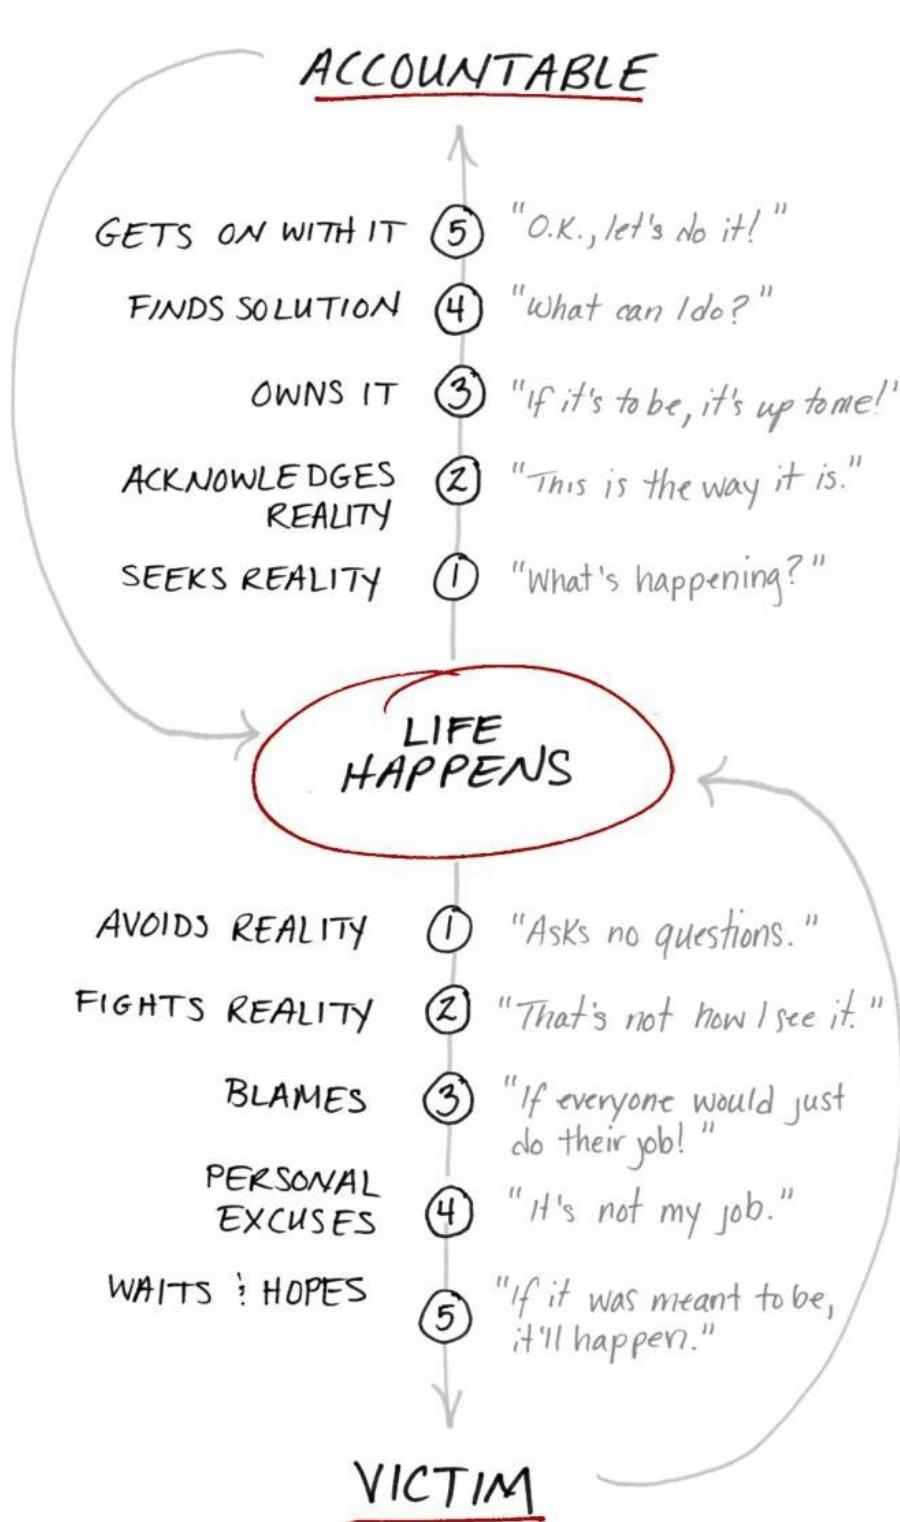 ACCOUNTABLE
GETS ON WITH IT 5 "O.K., let's do it!"
FINDS SOLUTION 4 "What can I do?"
OWNS IT 3 "If it's to be, it's up to me!"
ACKNOWLEDGES
REALITY 2 "This is the way it is."
SEEKS REALITY 1 "What's happening?"
LIFE
HAPPENS
AVOIDS REALITY 1 "Asks no questions."
FIGHTS REALITY 2 "That's not how I see it."
BLAMES 3 "If everyone would just
do their job!"
PERSONAL
EXCUSES 4 "It's not my job."
WAITS & HOPES 5 "If it was meant to be,
it'll happen."
VICTIM